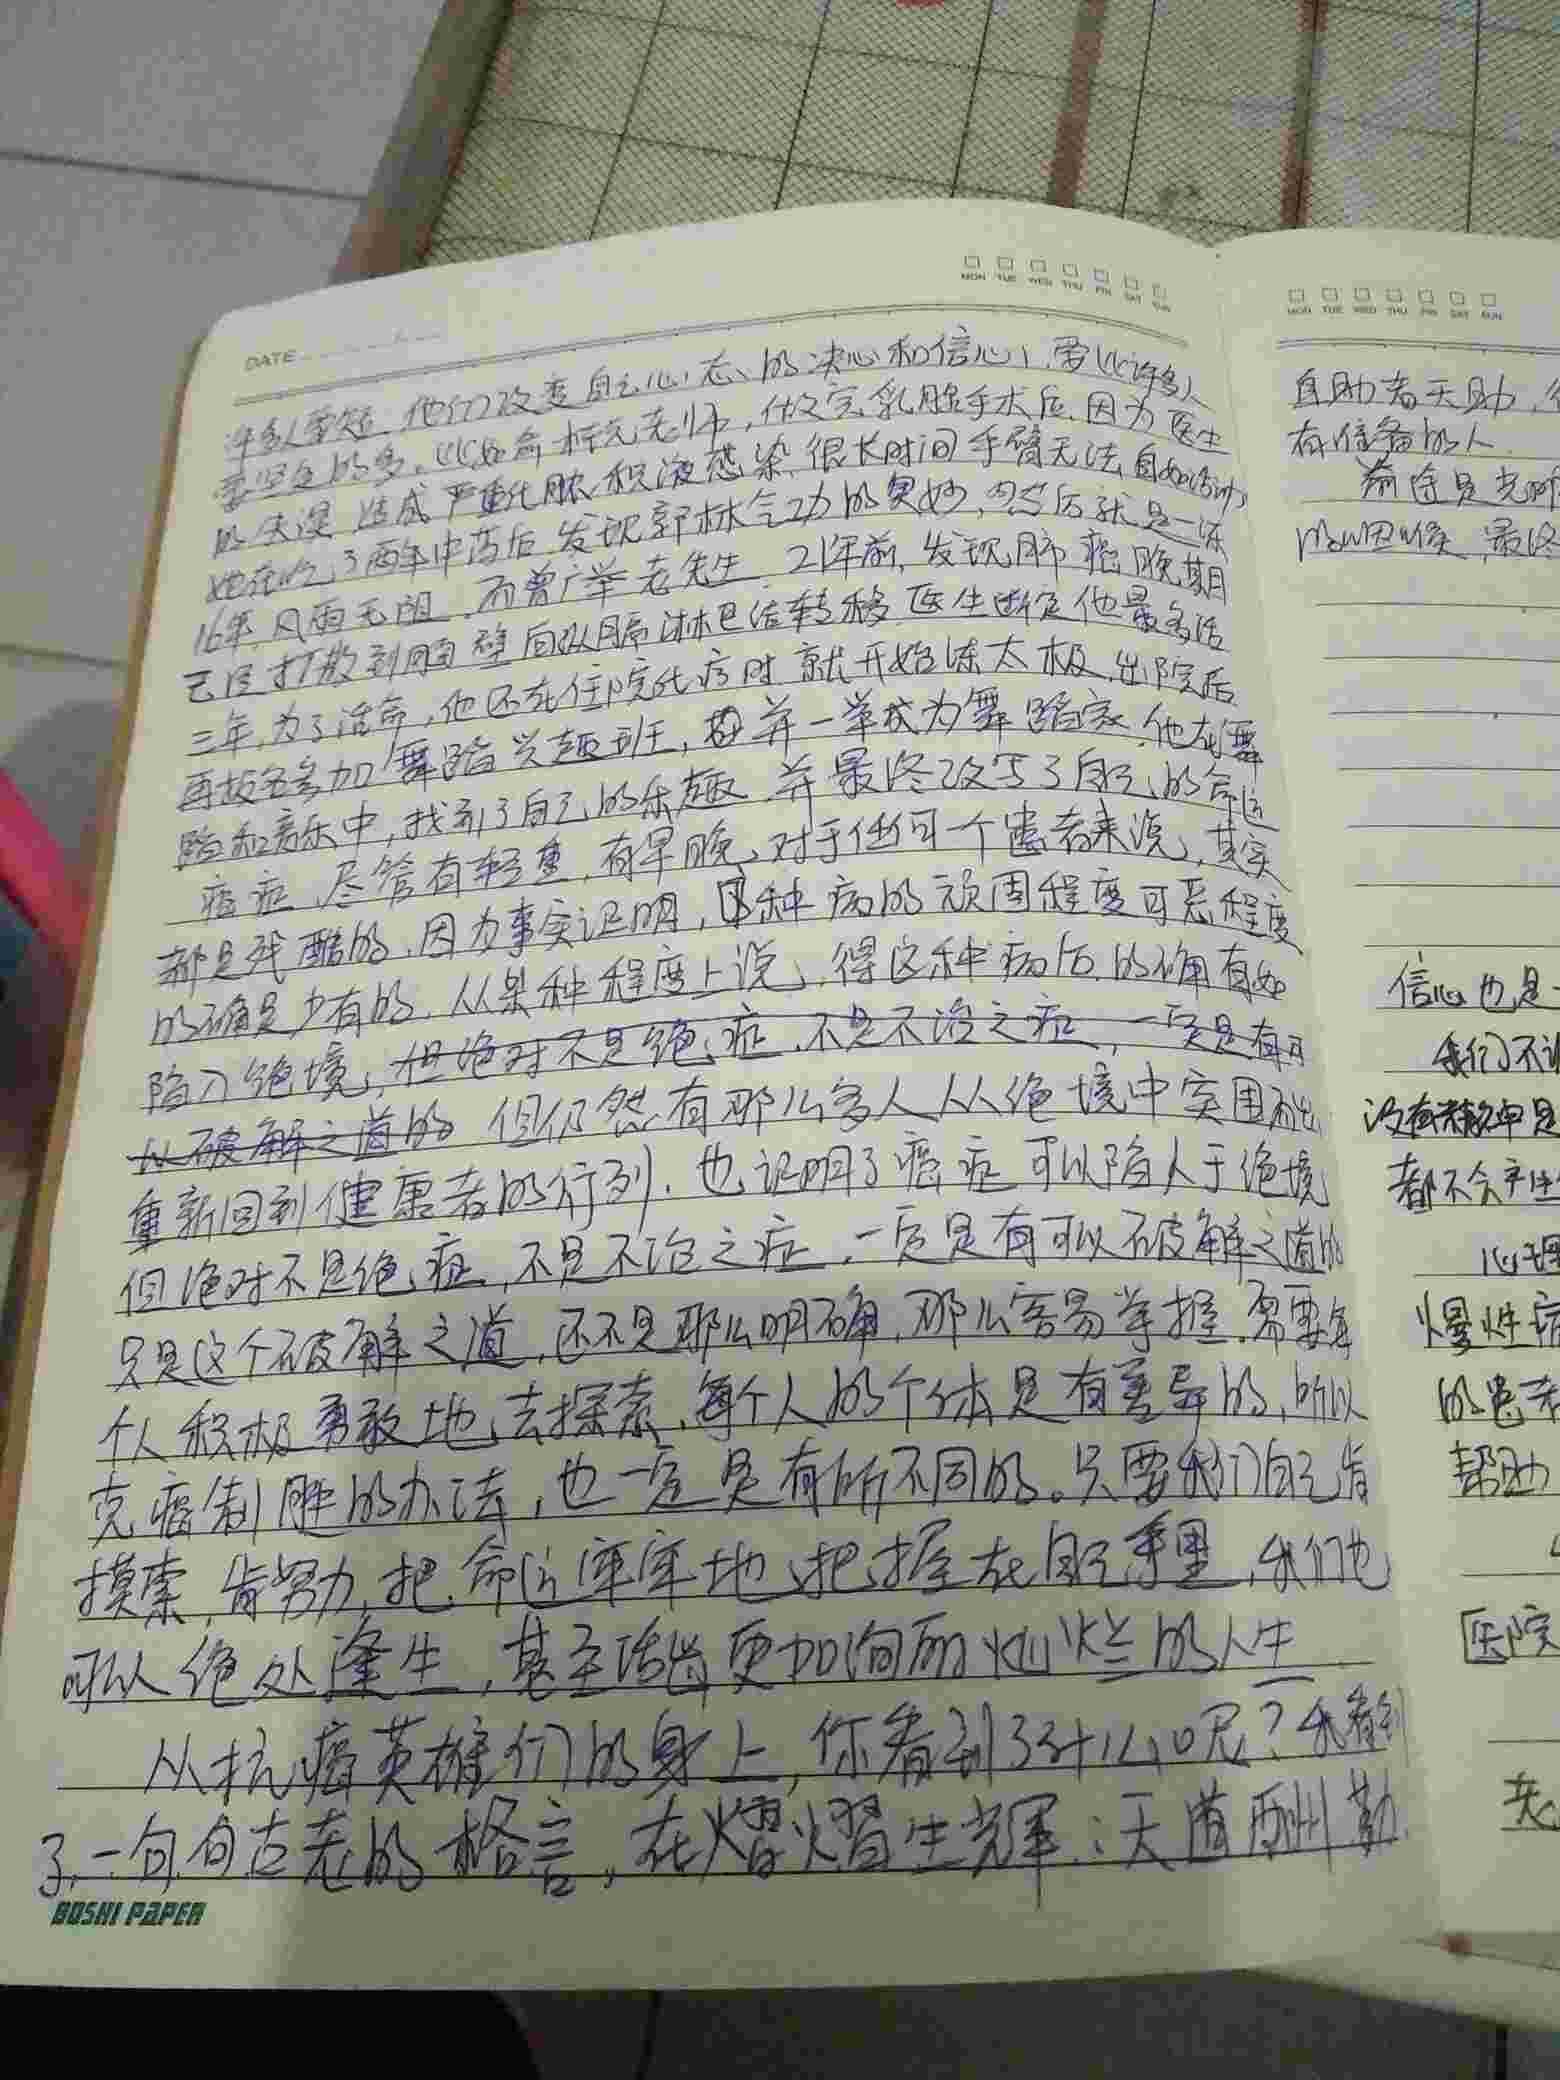 DATE
MON TUE WED THU FRI SAT SUN
许多人要短，他们改变自己心态的决心和信心，要比许多人
要坚定的多。比如俞 老师，做完乳腺手术后，因为医生
的失误，造成严重化脓积液感染，很长时间手臂无法自如活动，
她在吃了两年中药后，发现郭林气功的奥妙，然后就是一练
16年，风雨无阻，而曾广举老先生，21年前，发现肺癌晚期
已经扩散到胸壁 膈淋巴结转移，医生断定他最多活
三年，为了活命，他还在住院化疗时就开始练太极，出院后
再报名参加舞蹈兴趣班，并一举成为舞蹈家，他在舞
蹈和音乐中，找到了自己的乐趣，并最终改写了自己的命运
癌症，尽管有轻重，有早晚，对于任何一个患者来说，其实
都是残酷的，因为事实证明，这种病的顽固程度可恶程度
的确是少有的，从某种程度上说，得这种病后，的确有如
陷入绝境，但绝对不是绝症，不是不治之症，一定是有可
以破解之道的 但仍然有那么多人从绝境中突围而出
重新回到健康者的行列，也证明了癌症可以陷人于绝境
但绝对不是绝症，不是不治之症，一定是有可以破解之道的
只是这个破解之道，还不是那么明确，那么容易掌握，需要每
个人积极勇敢地去探索，每个人的个体是有差异的，所以
克癌制胜的办法，也一定是有所不同的。只要我们自己肯
摸索，肯努力，把命运牢牢地把握在自己手里，我们也
可以绝处逢生，甚至活出更加绚丽灿烂的人生
从抗癌英雄们的身上，你看到了什么呢？我看到
了，一句句古老的格言，在熠熠生辉：天道酬勤
BOSHI PAPER
MON TUE WED THU FRI SAT SUN
自助者天助，
有准备的人
前途是光明
的因素，最终
信心也是
我们不
没有精神是
都不会产生
心理
慢性病
的患者
帮助
医院